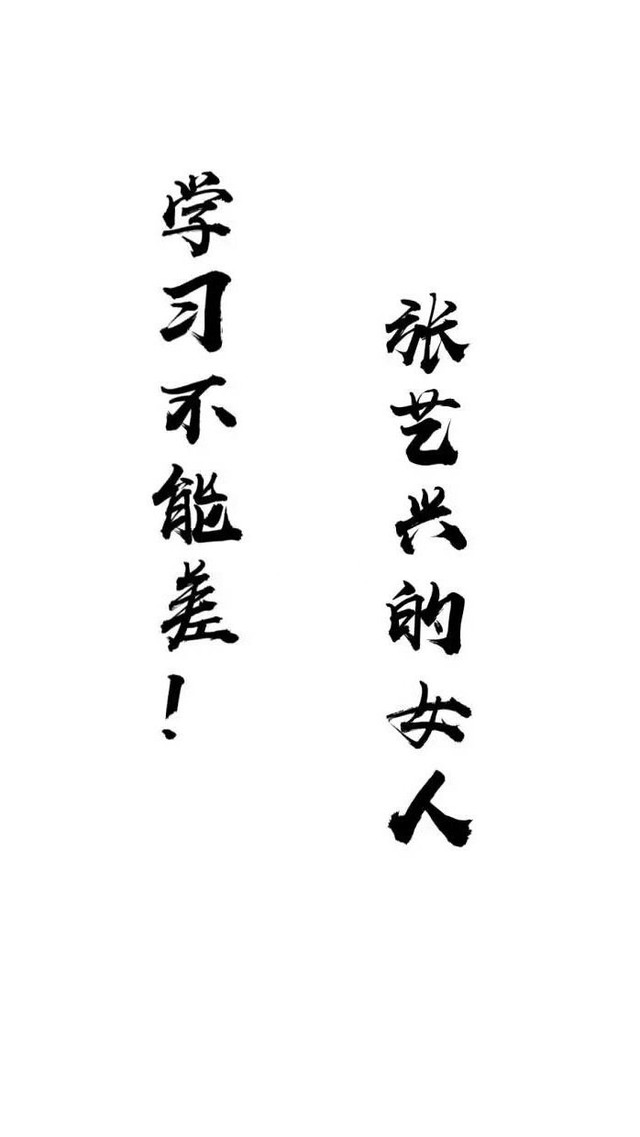 张艺兴的女人
学习不能差！